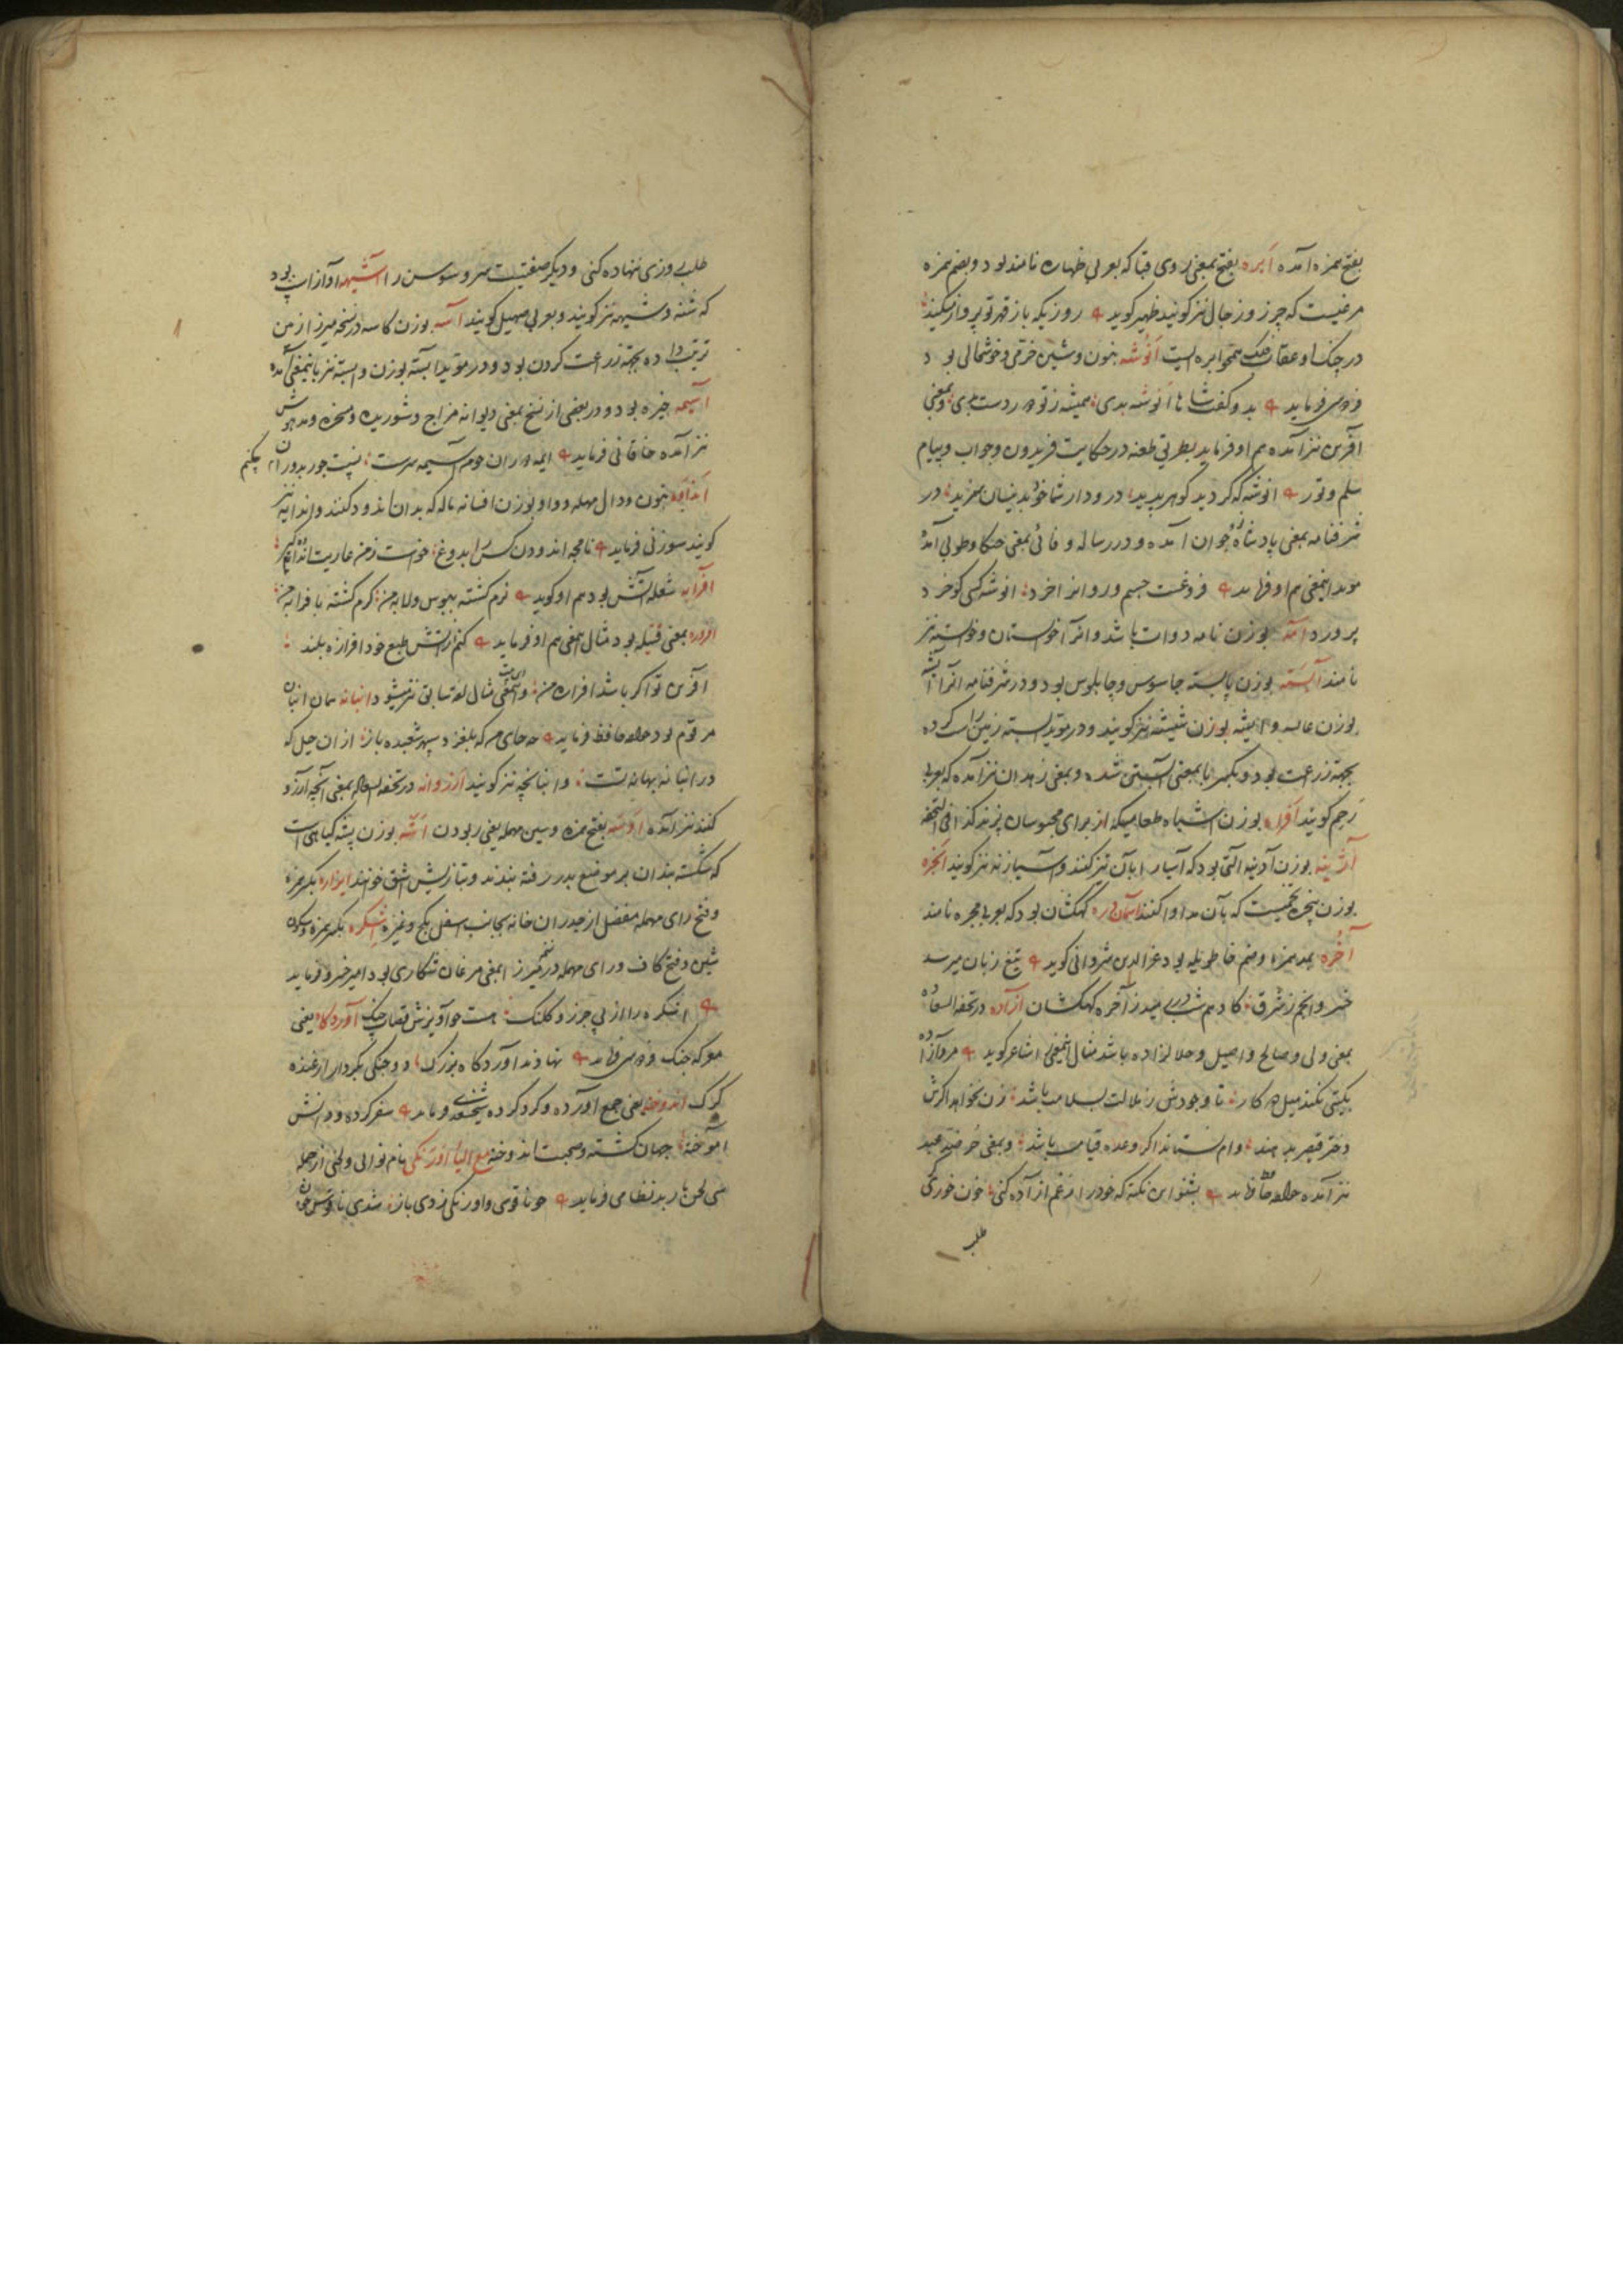 بفتح همزه آمده اَبره بفتح بمعنی روی قبا که بعربی ظهاره نامند بود و بضم همزه
مرغیست که چرز و زحال نیز کویند ظهیر کوید روزیکه باز قهر تو پرواز میکند
در چنک او عقاب همچو ابره ایست اَنُوشه بنون و شین خرمی و خوشحالی بود
فردوسی فرماید بدو کفت شاها انوشه بدی همیشه ز تو دور دست بدی و بمعنی
آفرین نیز آمده هم او فرماید بطریق طعنه در حکایت فریدون و جواب و پیام
سلم و تور انوشه که کردید کوهر پدید درود از شما خود بدینسان سزید در
شرفنامه بمعنی پادشاه جوان آمده و در رساله وفائی بمعنی خنکا و طوبی آمده
موید اینمعنی هم او فرماید فروغست جسم و روانرا خرد انوشه کسی کو خرد
پرورد آمه بوزن نامه دوات باشد و انرا خوستان و خوسته نیز
نامند آیشته بوزن پابسته جاسوس و چاپلوس بود و در شرفنامه انرا آیشه
بوزن عایشه و ایشه بوزن شیشه نیز کویند و در موید ابسته زمین راست کرده
بجهة زرعت بود و بکسر با بمعنی آبستن شده و بمعنی زهدان نیز آمده که بعربی
رحم کویند اَفراه بوزن اشباه طعامیکه از برای محبوسان پزند کذا فی التحفه
آژینه بوزن آدینه آلتی بود که آسیا را بآن تیز کنند و آسیازنه نیز کویند اَنجره
بوزن پنجره تخمیست که بآن مداوا کنند آسمان دره کهکشان بود که بعربی مجره نامند
آخُره بمد همزه و ضم خا طویله بود عزالدین شروانی کوید تیغ زبان میرسد
خسرو انجم ز شرق کادهم شب در رمید ز آخره کهکشان آزاده در تحفه السعاده
بمعنی ولی و صالح و اصیل و حلالزاده باشد مثال اینمعنی را شاعر کوید مرد آزاده
بکیتی نکند میل دو کار تا وجودش ز ملالت بسلامت باشد زن نخواهد اکرش
دختر قیصر بدهند وام نستاند اکر وعده قیامت باشد و بمعنی حر ضد عبد
نیز آمده خواجه حافظ فرماید بشنو این نکته که خود را ز غم آزاده کنی خون خوری کر
طلب
طلب روزی ننهاده کنی و دیکر صفتیست سرو و سوسن را آشیهه آواز اسپ بود
که شنه و شیهه نیز کویند و بعربی صهیل کویند آسه بوزن کاسه در نسخه میرزا زمین
ترتیب داده بجهة زرعت کردن بود و در موید ابسته بوزن وابسته نیز باینمعنی آمده
آسیمه خیره بود و در بعضی از نسخ بمعنی دیوانه مزاج و شوریده و مسخره و مدهوش
نیز آمده خاقانی فرماید
اَندایه بنون و دال مهمله و واو بوزن افسانه ماله که بدان اندود کنند و اندایه نیز
کویند سوزنی فرماید تا مجه اندودن کس را بدروغ خواست ز من عاریت اندایه کیر
افرازه شعله آتش بود هم او کوید نرم کشته ببوس و لابه من کرم کشته بافرازه من
افروزه بمعنی فتیله بود مثال اینمعنی هم او فرماید کنم از آتش طبع خود افرازه بلند
آفرین تو اکر باشد افروزه من و اینمعنی مثال لغت سابق نیز میشود انبانه همان انبان
مرقوم بود خواجه حافظ فرماید
در انبانه بهانه تست و انبانچه نیز کویند آرزوانه در تحفه السعاده بمعنی آنچه آرزو
کنند نیز آمده اَوسه بفتح همزه و سین مهمله یعنی ربودن اَشه بوزن پشه کیاهی است
که شکسته بندان بر موضع بدر رفته بندند و بتازیش اشق خوانند ایزاره بکسر همزه
و فتح رای مهمله مفصل از جدران خانه بجانب اسفل بکج و غیره اِشکره بکسر همزه و سکون
شین و فتح کاف و رای مهمله در نسخه میرزا بمعنی مرغان شکاری بود امیر خسرو فرماید
اشکره را از پی چرز و کلنک هست خوآویزش قصاب چنک آوردکاه یعنی
معرکه جنک فردوسی فرماید نهادند آوردکاه بزرک دو جنکی بکردار ارغنده
کرک اندوخته یعنی جمع آورده و کرد کرده شیخ سعدی فرماید سفر کرده و دانش
آموخته جهان کشته و صحبت اندوخته مع الیاء اورنکی نام نوای و لحنی از جمله
سی لحن باربد نظامی فرماید چو ناقوسی و اورنکی زدی باز شدی ناقوس خوان